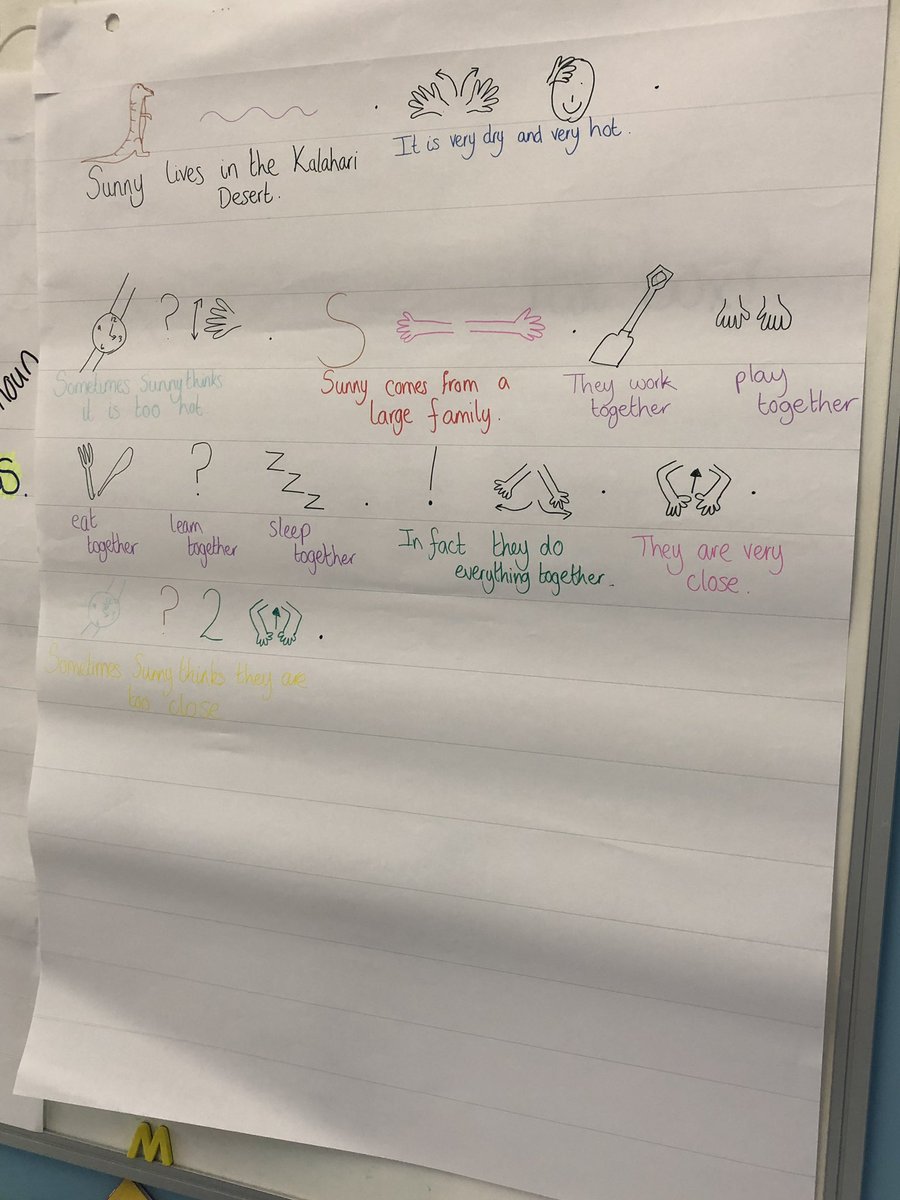 Sunny lives in the Kalahari
Desert.
It is very dry and very hot.
? 
Sometimes Sunny thinks
it is too hot.
S
Sunny comes from a
large family.
They work
together
play
together
eat
together
?
learn
together
Z Z Z
sleep
together
!
In fact they do
everything together.
They are very
close.
? 2
Sometimes Sunny thinks they are
too close
noun
s.
M